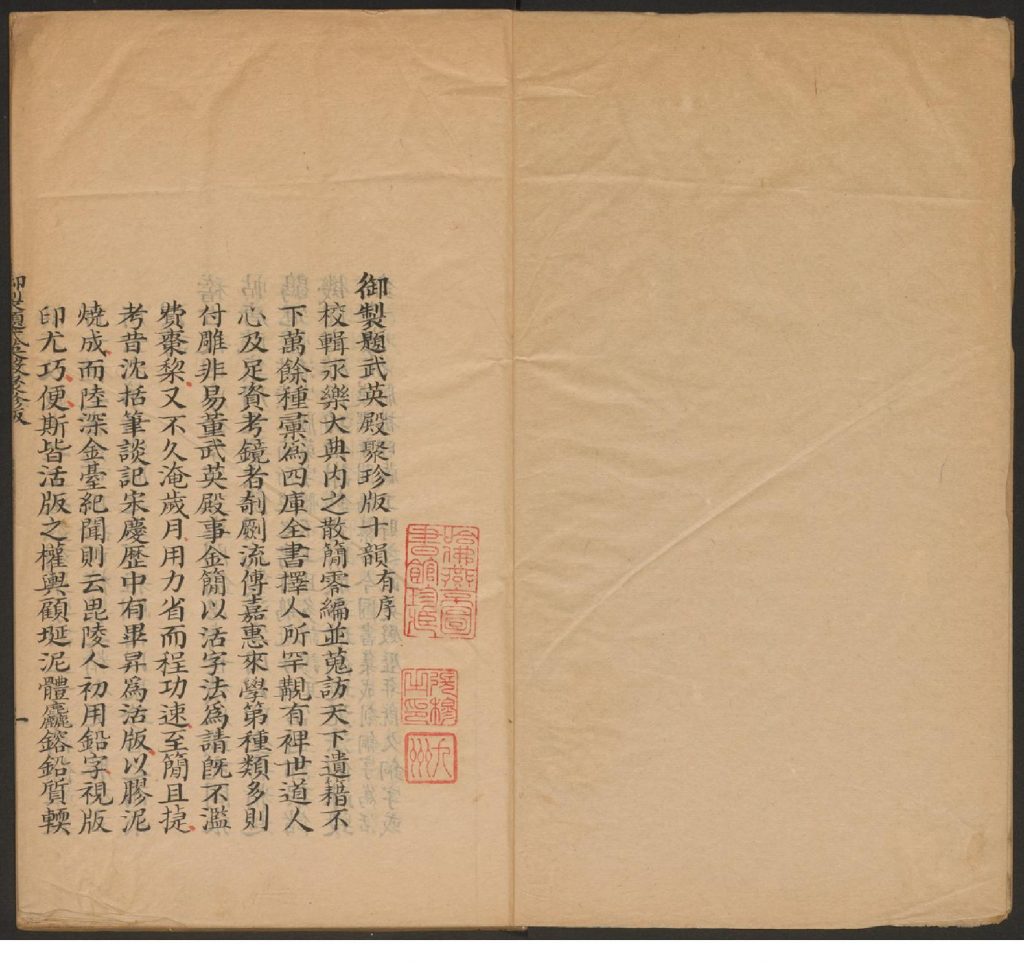 御製題武英殿聚珍版十韻有序
校輯永樂大典內之散簡零編並蒐訪天下遺籍不
下萬餘種彙為四庫全書擇人所罕覯有裨世道人
心及足資考鏡者剞劂流傳嘉惠來學第種類多則
付雕非易董武英殿事金簡以活字法為請既不濫
費棗棃又不久淹歲月用力省而程功速至簡且捷
考昔沈括筆談記宋慶歷中有畢昇為活版以膠泥
燒成而陸深金臺紀聞則云毘陵人初用鉛字視版
印尤巧便斯皆活版之權輿顧埏泥體麤鎔鉛質輭
御製題武英殿聚珍版
一
哈佛燕京圖書館珍藏
九州